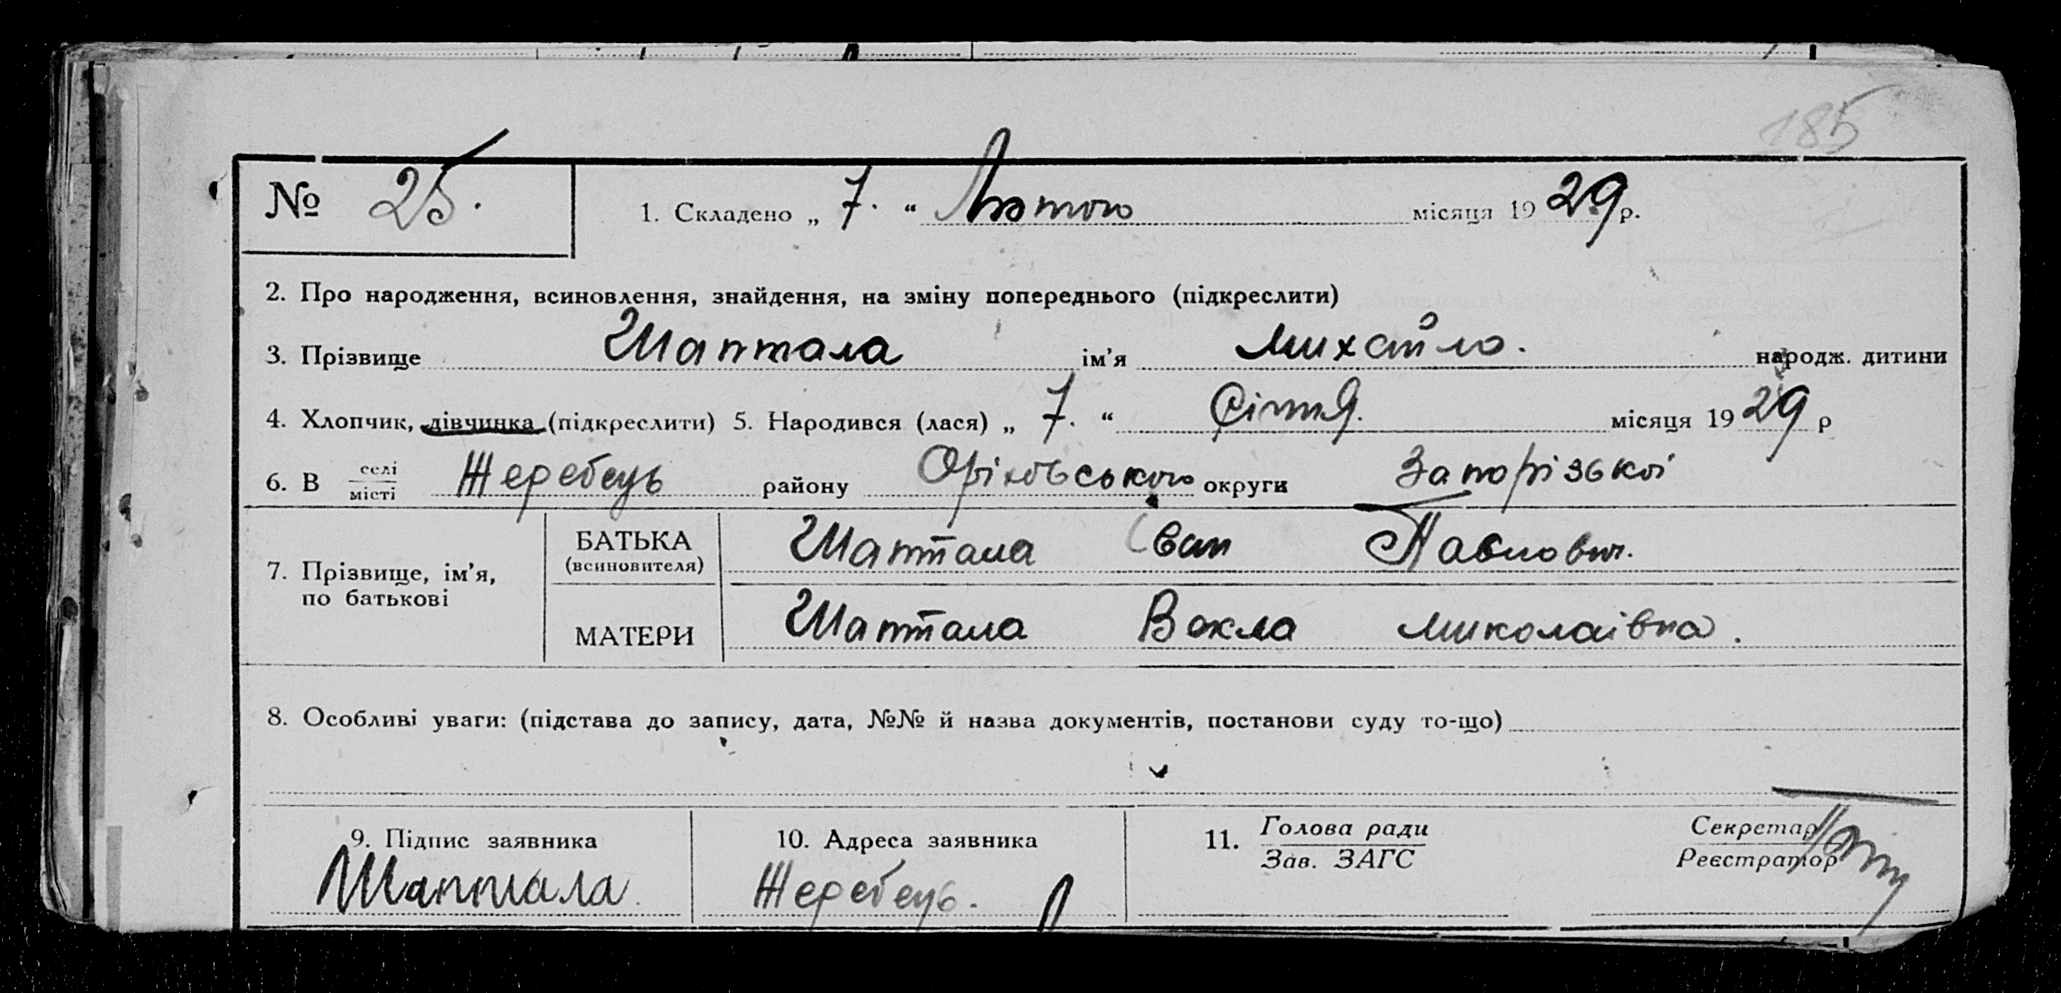 185
№ 25.
1. Складено „ 7. “ Лютого місяця 1929 р.
2. Про народження, всиновлення, знайдення, на зміну попереднього (підкреслити)
3. Прізвище Шаптала ім’я Михайло. народж. дитини
4. Хлопчик, дівчинка (підкреслити) 5. Народився (лася) „ 7. “ Січня. місяця 1929 р
6. В селі/місті Жеребець району Оріхівського округи Запорізької
7. Прізвище, ім’я, по батькові
БАТЬКА (всиновителя) Шаптала Іван Павлович.
МАТЕРИ Шаптала Векла Миколаівна.
8. Особливі уваги: (підстава до запису, дата, №№ й назва документів, постанови суду то-що)
9. Підпис заявника
Шаптала
10. Адреса заявника
Жеребець.
11. Голова ради
Зав. ЗАГС
Секретар
Реєстратор